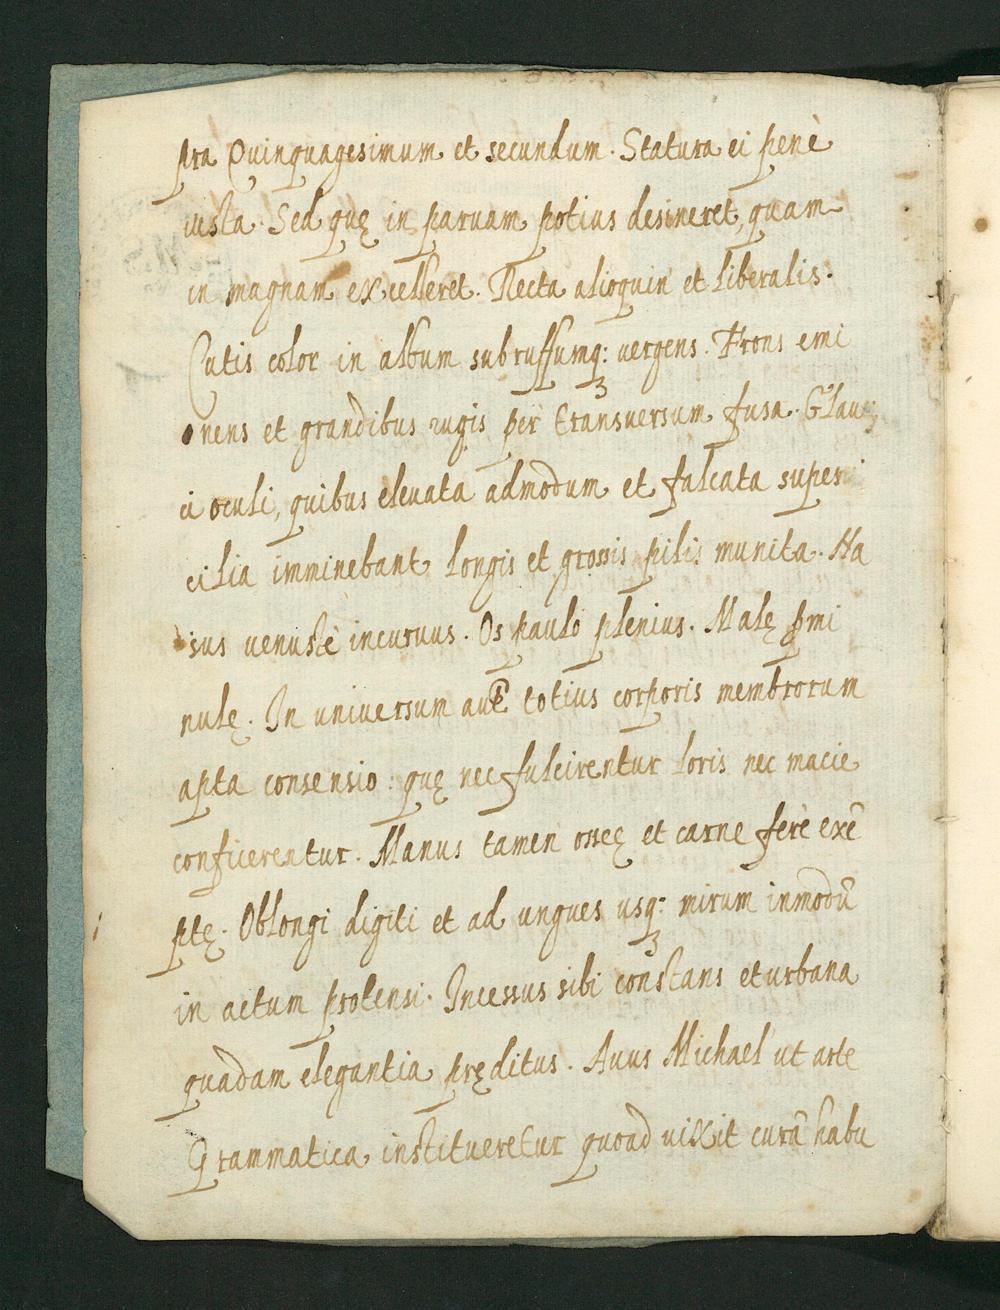 pra Quinquagesimum et secundum. Statura ei penè
iusta. Sed quę in paruam potius desineret, quam
in magnam excelleret. Recta alioquin et liberalis.
Cutis color in album subruffumq: uergens. Frons emi
nens et grandibus rugis per transuersum fusa. Glau
ci oculi, quibus eleuata admodum et falcata super
cilia imminebant longis et grossis pilis munita. Na
sus uenustè incuruus. Os paulo plenius. Malę
nulę. In uniuersum aut totius corporis membrorum
apta consensio: quę nec fulcirentur loris nec macie
conficerentur. Manus tamen osseę et carne ferè exē
ptę. Oblongi digiti et ad ungues usq: mirum inmodū
in actum protensi. Incessus sibi constans et urbana
quadam elegantia pręditus. Auus Michael ut arte
Grammatica institueretur quoad uixit curā habu